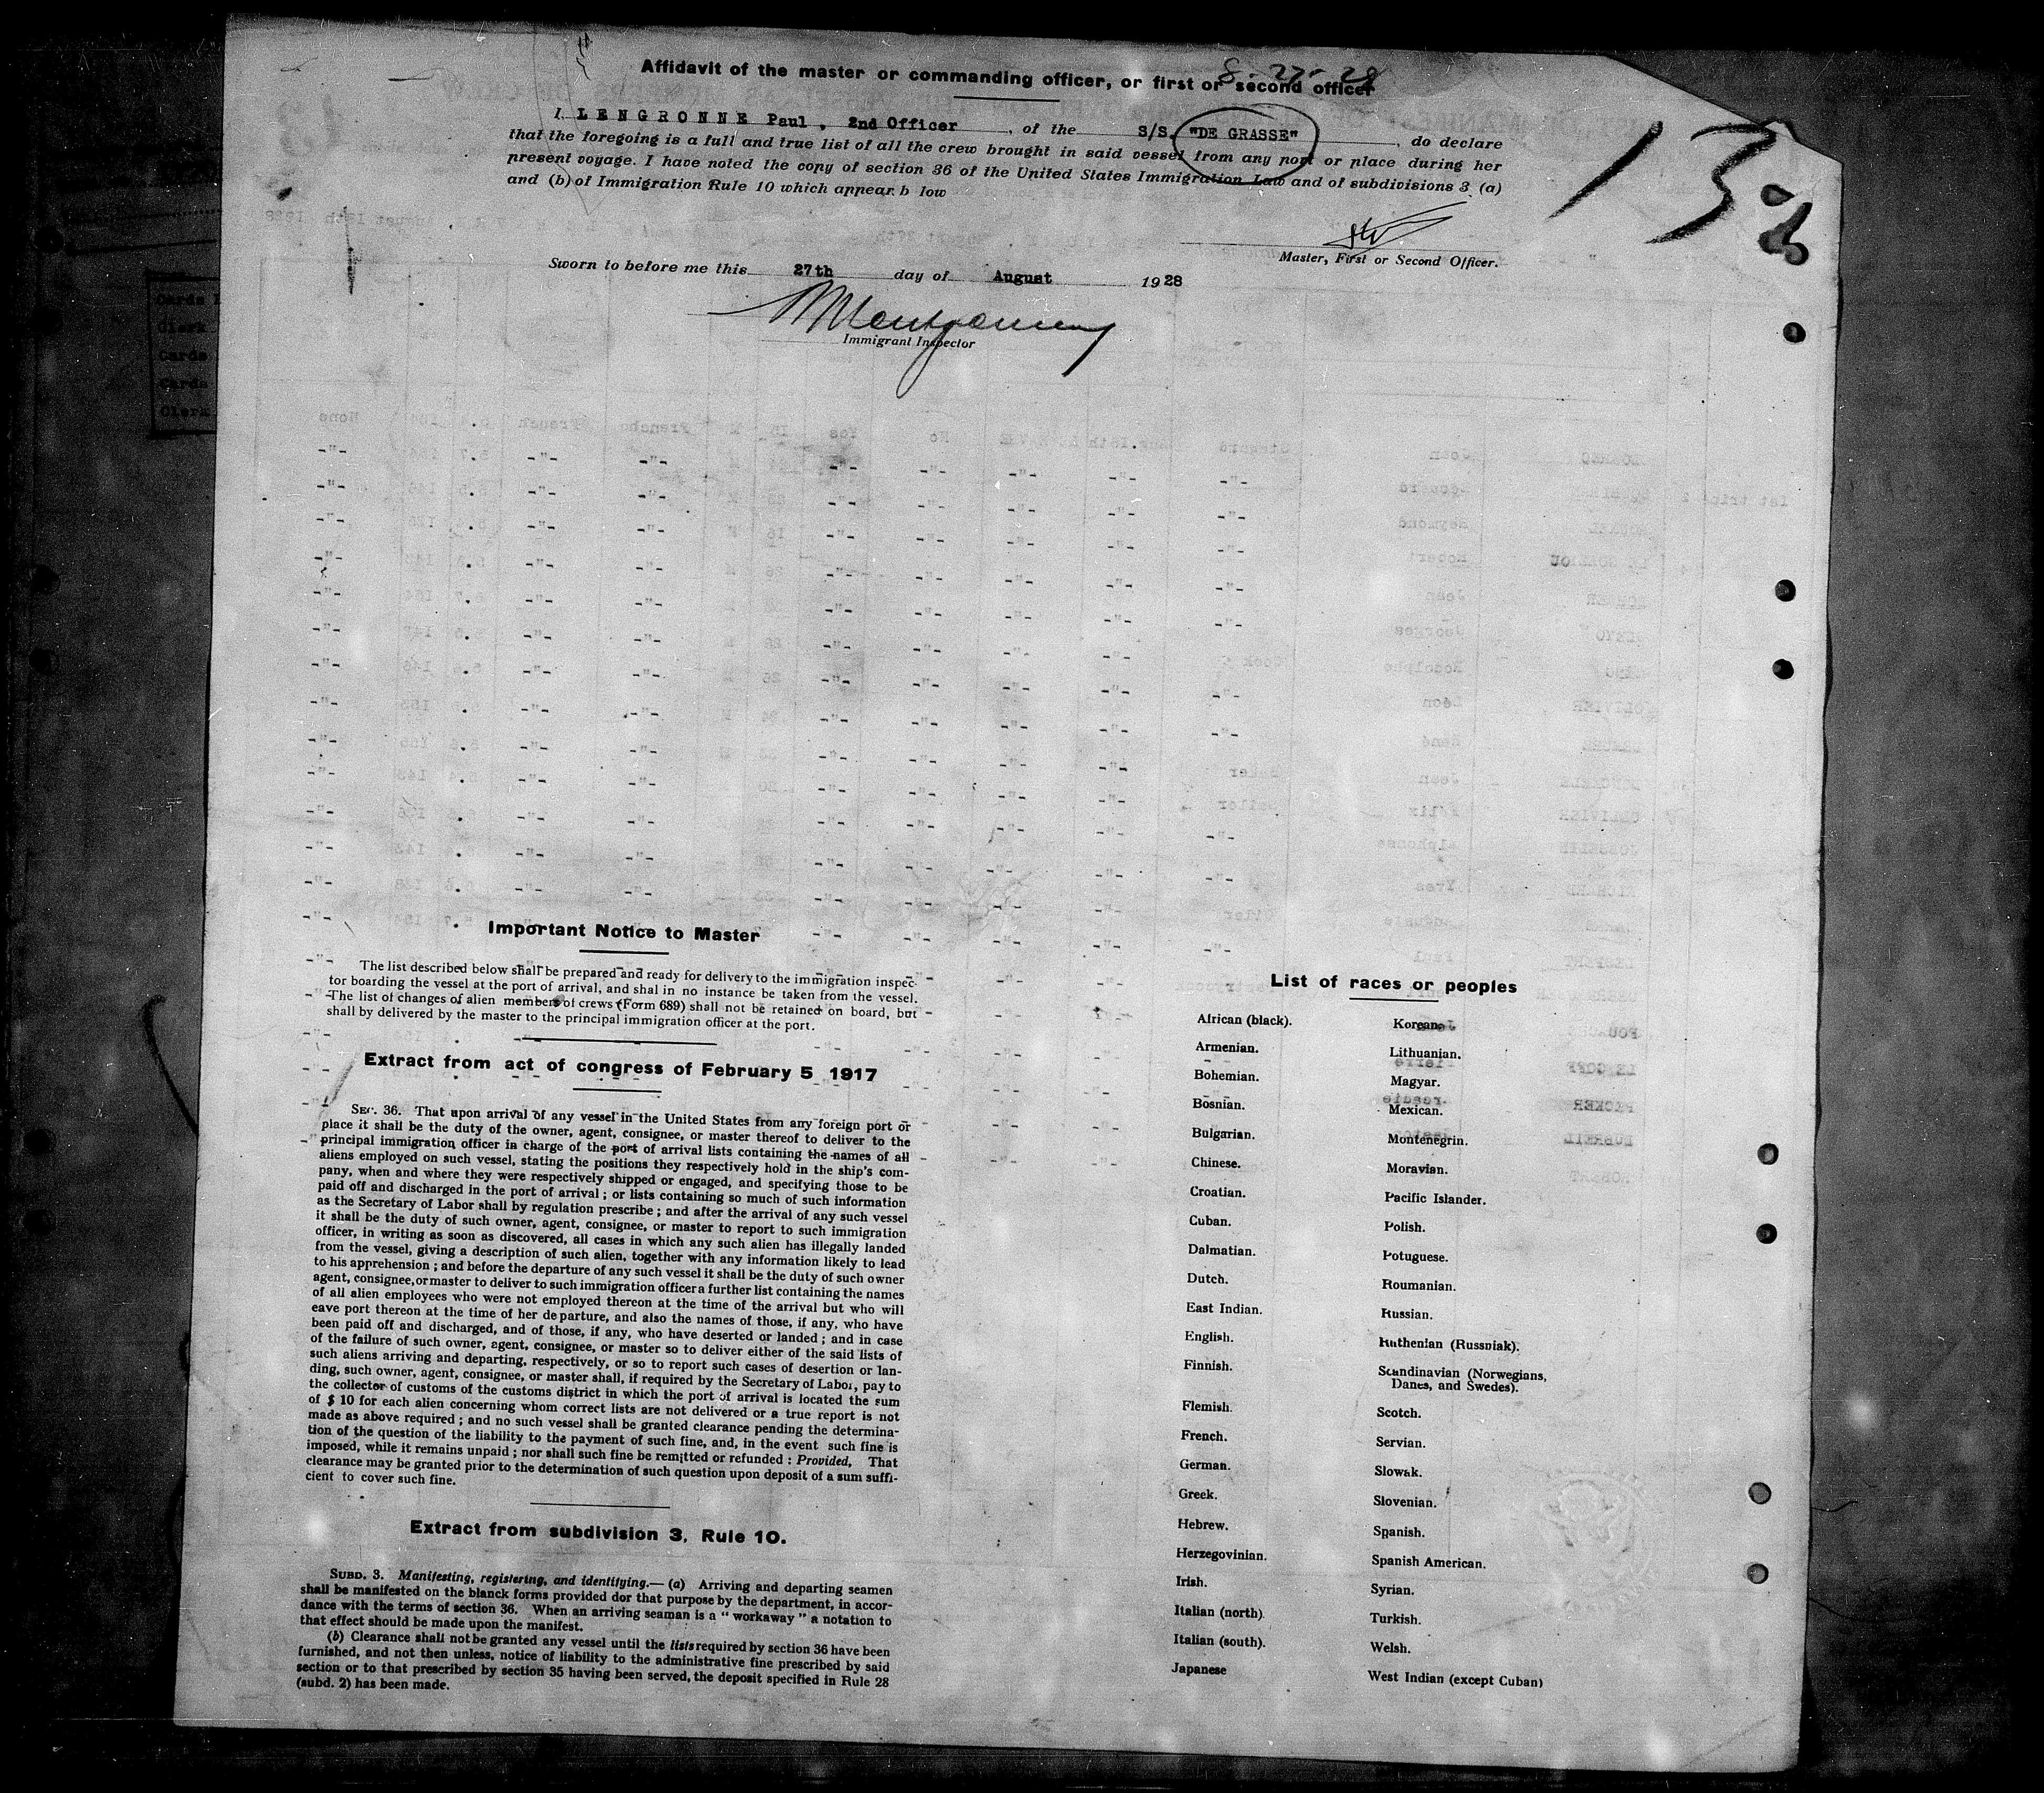 8-27-28
Affidavit of the master or commanding officer, or first or second officer
I, LENGRONNE Paul, 2nd Officer, of the S/S. "DE GRASSE", do declare
that the foregoing is a full and true list of all the crew brought in said vessel from any port or place during her
present voyage. I have noted the copy of section 36 of the United States Immigration Law and of subdivisions 3 (a)
and (b) of Immigration Rule 10 which appear b low
13-
Master, First or Second Officer.
Sworn to before me this 27th day of August 1928
Montgomery
Immigrant Inspector
Important Notice to Master
The list described below shall be prepared and ready for delivery to the immigration inspec-
tor boarding the vessel at the port of arrival, and shal in no instance be taken from the vessel.
The list of changes of alien members of crews (Form 689) shall not be retained on board, but
shall by delivered by the master to the principal immigration officer at the port.
Extract from act of congress of February 5 1917
SEC. 36. That upon arrival of any vessel in the United States from any foreign port or
place it shall be the duty of the owner, agent, consignee, or master thereof to deliver to the
principal immigration officer in charge of the port of arrival lists containing the names of all
aliens employed on such vessel, stating the positions they respectively hold in the ship's com-
pany, when and where they were respectively shipped or engaged, and specifying those to be
paid off and discharged in the port of arrival ; or lists containing so much of such information
as the Secretary of Labor shall by regulation prescribe ; and after the arrival of any such vessel
it shall be the duty of such owner, agent, consignee, or master to report to such immigration
officer, in writing as soon as discovered, all cases in which any such alien has illegally landed
from the vessel, giving a description of such alien, together with any information likely to lead
to his apprehension ; and before the departure of any such vessel it shall be the duty of such owner
agent, consignee, or master to deliver to such immigration officer a further list containing the names
of all alien employees who were not employed thereon at the time of the arrival but who will
eave port thereon at the time of her departure, and also the names of those, if any, who have
been paid off and discharged, and of those, if any, who have deserted or landed ; and in case
of the failure of such owner, agent, consignee, or master so to deliver either of the said lists of
such aliens arriving and departing, respectively, or so to report such cases of desertion or lan-
ding, such owner, agent, consignee, or master shall, if required by the Secretary of Labor, pay to
the collector of customs of the customs district in which the port of arrival is located the sum
of $ 10 for each alien concerning whom correct lists are not delivered or a true report is not
made as above required ; and no such vessel shall be granted clearance pending the determina-
tion of the question of the liability to the payment of such fine, and, in the event such fine is
imposed, while it remains unpaid ; nor shall such fine be remitted or refunded : Provided, That
clearance may be granted prior to the determination of such question upon deposit of a sum suffi-
cient to cover such fine.
Extract from subdivision 3, Rule 10.
SUBD. 3. Manifesting, registering, and identifying.— (a) Arriving and departing seamen
shall be manifested on the blanck forms provided dor that purpose by the department, in accor-
dance with the terms of section 36. When an arriving seaman is a " workaway " a notation to
that effect should be made upon the manifest.
(b) Clearance shall not be granted any vessel until the lists required by section 36 have been
furnished, and not then unless, notice of liability to the administrative fine prescribed by said
section or to that prescribed by section 35 having been served, the deposit specified in Rule 28
(subd. 2) has been made.
List of races or peoples
African (black).
Armenian.
Bohemian.
Bosnian.
Bulgarian.
Chinese.
Croatian.
Cuban.
Dalmatian.
Dutch.
East Indian.
English.
Finnish.
Flemish.
French.
German.
Greek.
Hebrew.
Herzegovinian.
Irish.
Italian (north).
Italian (south).
Japanese
Korean.
Lithuanian.
Magyar.
Mexican.
Montenegrin.
Moravian.
Pacific Islander.
Polish.
Potuguese.
Roumanian.
Russian.
Ruthenian (Russniak).
Scandinavian (Norwegians,
Danes, and Swedes).
Scotch.
Servian.
Slowak.
Slovenian.
Spanish.
Spanish American.
Syrian.
Turkish.
Welsh.
West Indian (except Cuban)